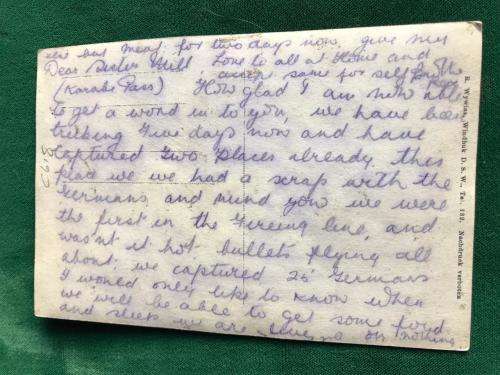 else but meat for two days now, give my
Love to all at Home and
Dear Sister Will accept same for self
(Karabi Pass) How glad I am now able
to get a word in to you, we have been
treking five days now and have
captured two places already. this
place we we had a scrap with the
Germans, and mind you we were
the first in the Fireing line, and
wasn't it hot bullets flying all
about; we captured 25 Germans
I would only like to know when
we will be able to get some food
and sleep we are living on nothing
R. Wywias, Windhuk D. S. W., Tel. 132. Nachdruck verboten